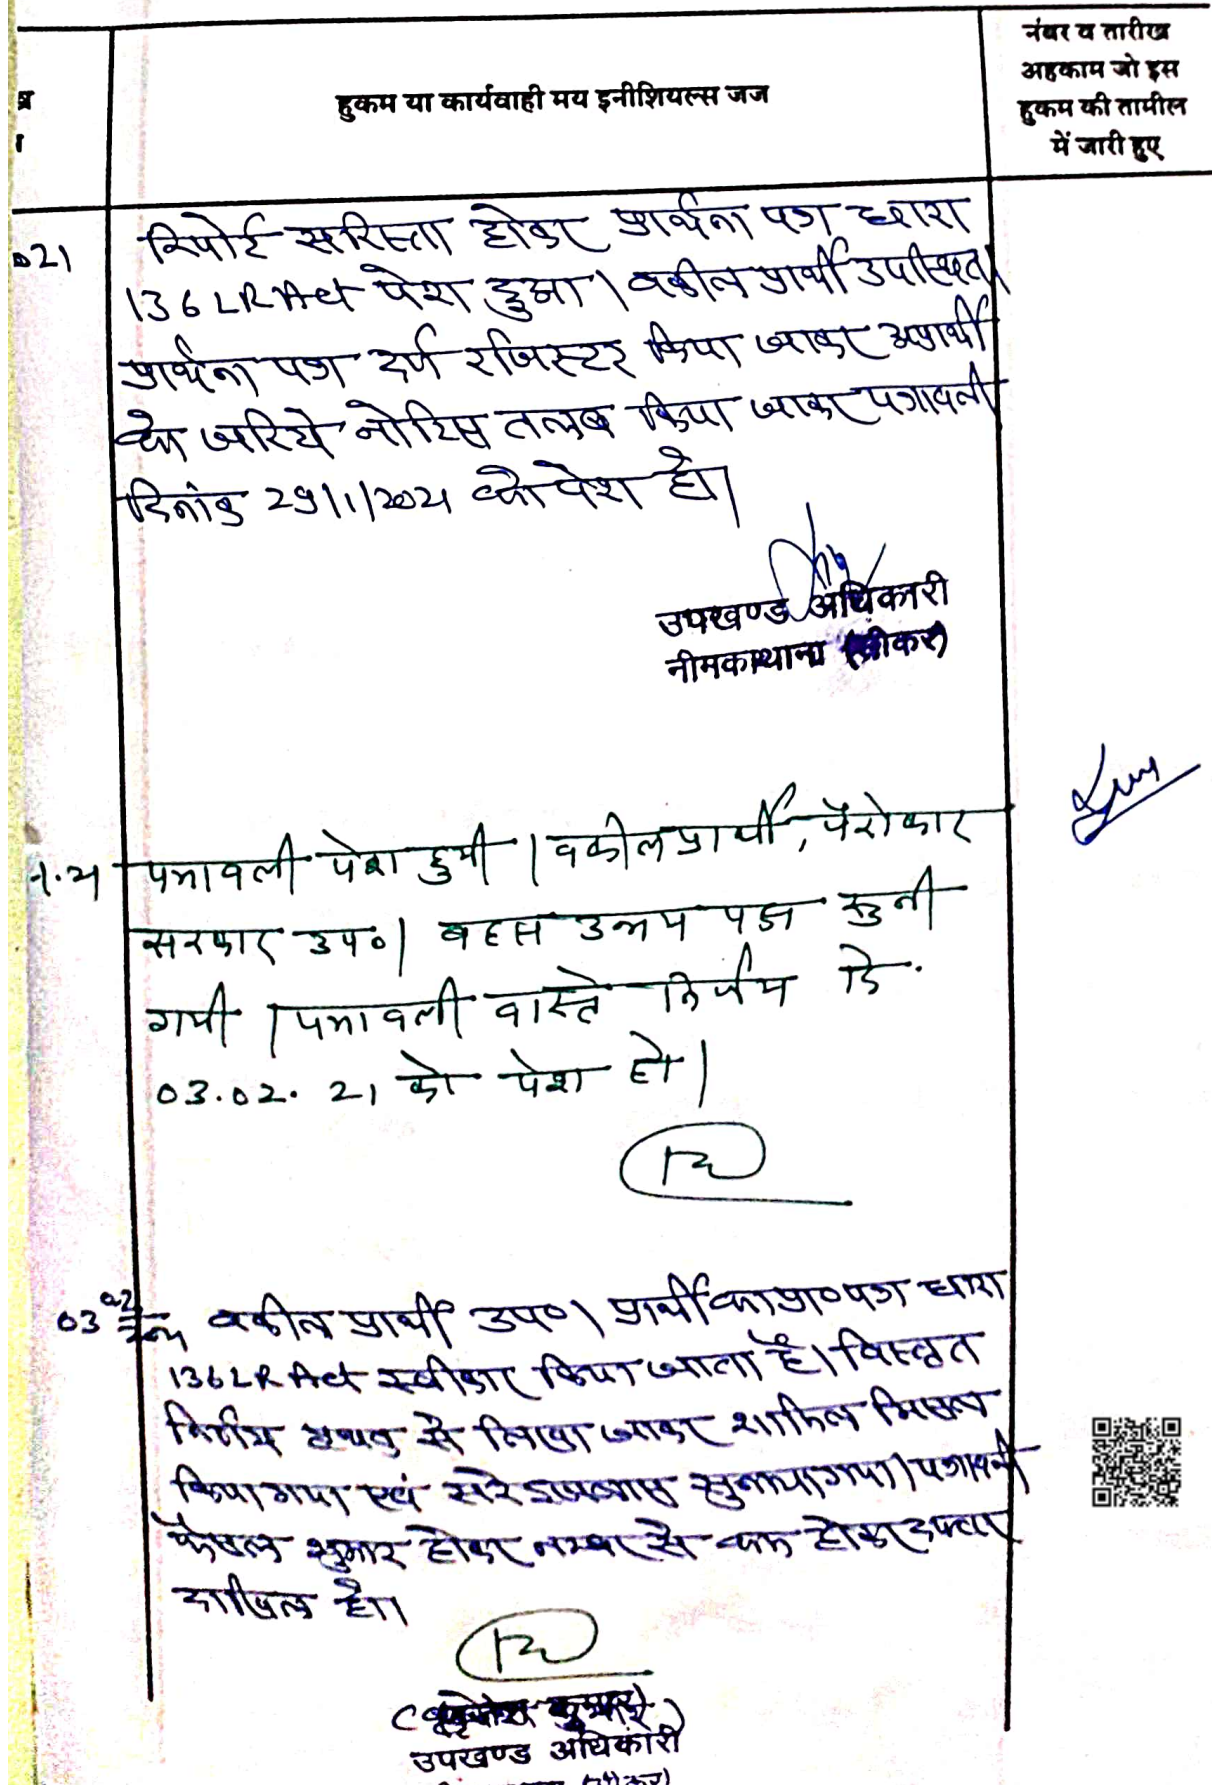 नंबर व तारीख
अहकाम जो इस
हुकम की तामील
में जारी हुए
हुकम या कार्यवाही मय इनीशियल्स जज
021 रिपोर्ट सरिस्ता होकर प्रार्थना पत्र धारा
136 LR Act पेश हुआ। वकील प्रार्थी उपस्थित।
प्रार्थना पत्र दर्ज रजिस्टर किया जाकर अप्रार्थी
को जरिये नोटिस तलब किया जाकर पत्रावली
दिनांक 29/1/2021 को पेश हो।
उपखण्ड अधिकारी
नीमकाथाना (सीकर)
1.21 पत्रावली पेश हुयी। वकील प्रार्थी, पैरोकार
सरकार उप०। बहस उभय पक्ष सुनी
गयी। पत्रावली वास्ते निर्णय दि.
03.02.21 को पेश हो।
03 02 वकील प्रार्थी उप०। प्रार्थी का प्रा०पत्र धारा
136 LR Act स्वीकार किया जाता है। विस्तृत
निर्णय पृथक से लिखा जाकर शामिल मिसल
किया गया एवं सरे इजलास सुनाया गया। पत्रावली
फैसल शुमार होकर नम्बर से कम होकर दफ्तर
दाखिल हो।
उपखण्ड अधिकारी